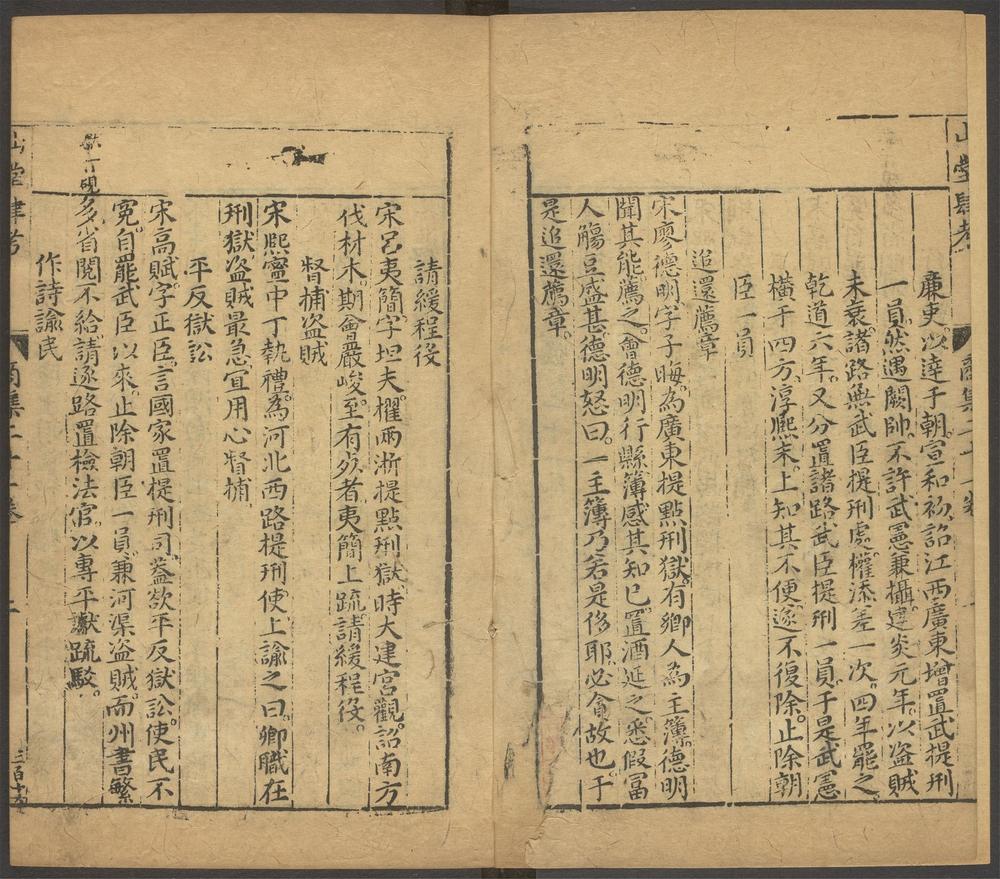 山堂肆考
商集二十一卷
廉吏以達于朝宣和初詔江西廣東增置武提刑
一員然遇闕帥不許武憲兼攝建炎元年以盗賊
未衰諸路無武臣提刑處權添差一次四年罷之
乾道六年又分置諸路武臣提刑一員于是武憲
橫于四方淳熙末上知其不便遂不復除止除朝
臣一員
追還薦章
宋廖德明字子晦為廣東提點刑獄有鄉人為主簿德明
聞其能薦之會德明行縣簿感其知已置酒延之悉假冨
人觴豆盛甚德明怒曰一主簿乃若是侈耶必貪故也于
是追還薦章
請緩程役
宋吕夷簡字坦夫擢兩浙提點刑獄時大建宮觀詔南方
伐材木期會嚴峻至有死者夷簡上疏請緩程役
督捕盗賊
宋熙寧中丁執禮為河北西路提刑使上諭之曰卿職在
刑獄盗賊最急宜用心督捕
平反獄訟
宋高賦字正臣言國家置提刑司蓋欲平反獄訟使民不
寃自罷武臣以來止除朝臣一員兼河渠盗賊而州書繁
多省閱不給請逐路置檢法官以專平讞疏駁
作詩諭民
山堂肆考
商集二十一卷